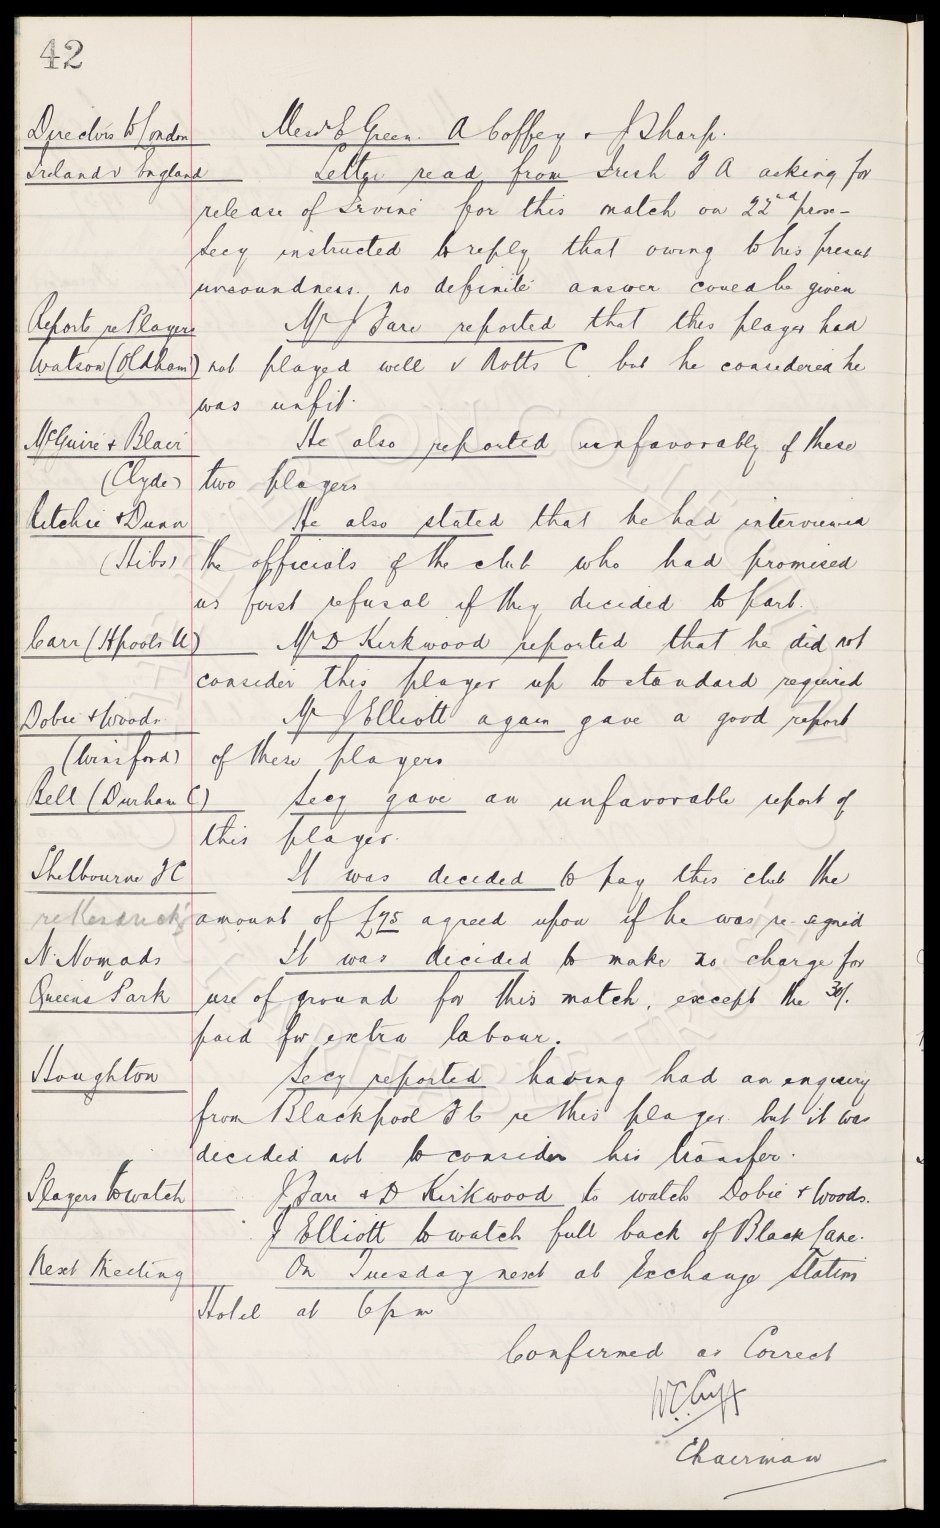 42
Directors to London Messrs E Green. A Coffey & J Sharp.
Ireland v England Letter read from Irish F A asking for
release of Irvine for this match on 22nd prox-
Secy instructed to reply that owing to his present
unsoundness. no definite answer could be given
Reports re Players Mr J Fare reported that this player had
Watson (Oldham) not played well v Notts C. but he considered he
was unfit.
McGuire & Blair He also reported unfavorably of these
(Clyde) two players
Ritchie & Dunn He also stated that he had interviewed
(Hibs) the officials of the club who had promised
us first refusal if they decided to part.
Carr (Hpools U) Mr D Kirkwood reported that he did not
consider this player up to standard required
Dobie & Woods. Mr J Elliott again gave a good report
(Winsford) of these players
Bell (Durham C) Secy gave an unfavorable report of
this player.
Shelbourne FC It was decided to pay this club the
re Kendrick amount of £75 agreed upon if he was re-signed
N. Nomads It was decided to make no charge for
v
Queens Park use of ground for this match, except the 30/.
paid for extra labour.
Houghton Secy reported having had an enquiry
from Blackpool F C re this player but it was
decided not to consider his transfer.
Players to watch J Fare & D Kirkwood to watch Dobie & Woods.
J Elliott to watch full back of Black Lane.
Next Meeting On Tuesday next at Exchange Station
Hotel at 6 pm
Confirmed as Correct
W.C. Cuff
Chairman